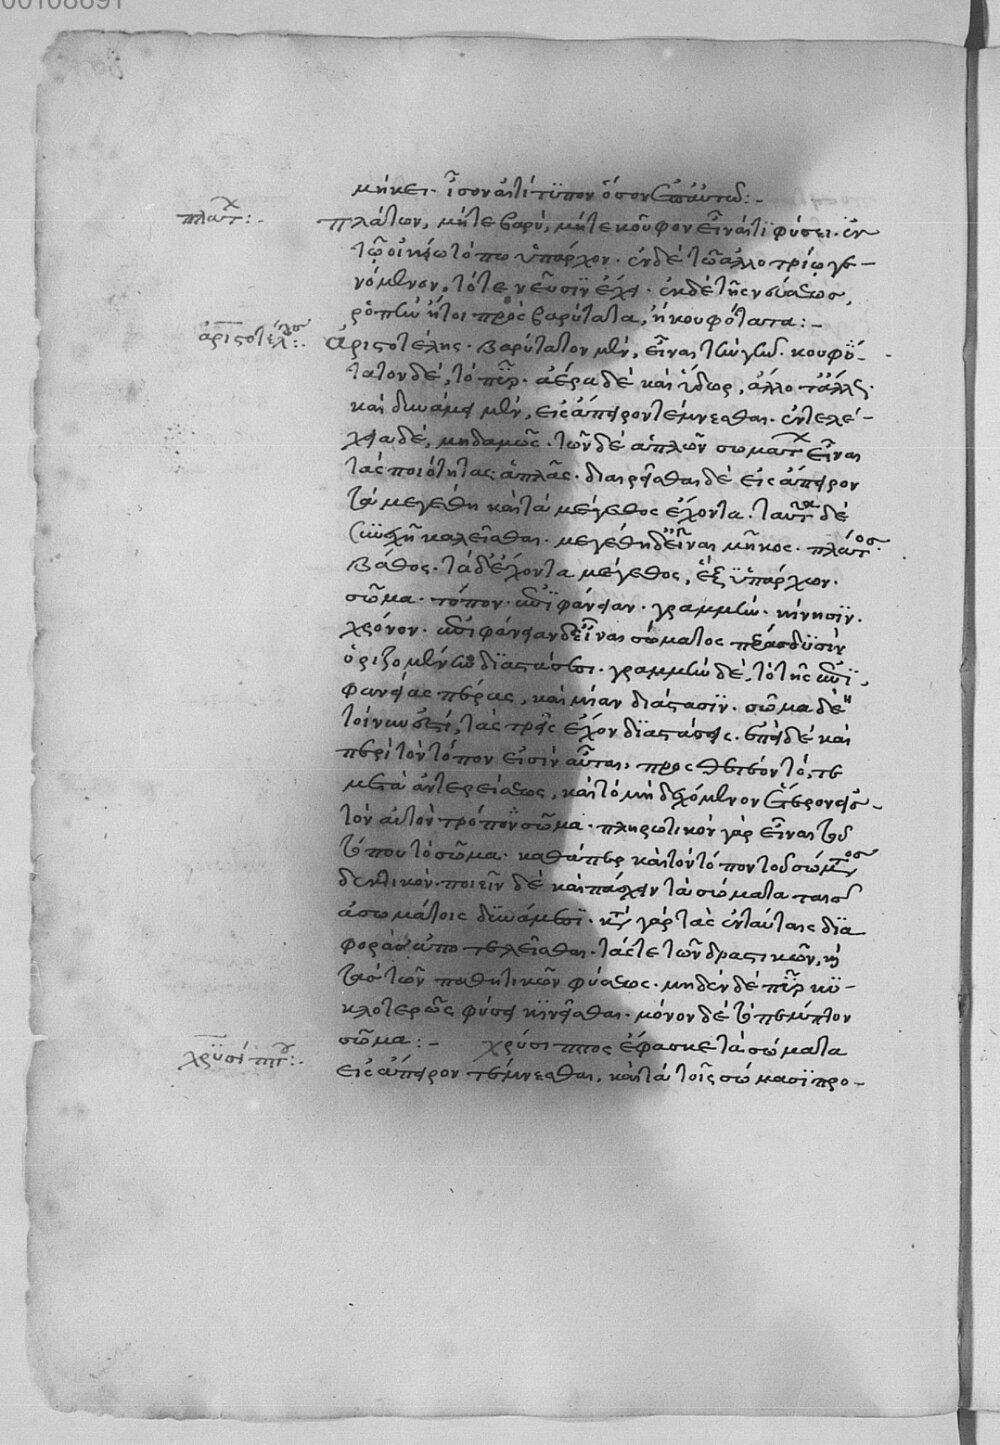 00108691
μήκει. ἴσον ἀντίτυπον ὅσον ἐπ' αὐτῷ:-
πλάτ:-
πλάτων, μήτε βαρὺ, μήτε κοῦφον εἶναί τι φύσει. ἐν
τῷ οἰκείω τόπω ὑπάρχον. ἐν δὲ τῶ ἀλλοτρίω γε-
νόμενον, τότε νεῦσιν ἔχει. ἐκ δὲ τῆς νεύσεως,
ῥοπὴν ἤτοι πρὸς βαρύτατα, ἢ κουφότατα:-
ἀριστοτέλης:-
ἀριστοτέλης. βαρύτατον μὲν, εἶναι τὴν γῆν. κουφό-
τατον δὲ, τὸ πῦρ. ἀέρα δὲ καὶ ὕδωρ, ἄλλοτ' ἄλλως.
καὶ δυνάμει μὲν, εἰς ἄπειρον τέμνεσθαι. ἐντελε-
χεία δὲ, μηδαμῶς. τῶν δὲ ἁπλῶν σωμάτων εἶναι
τὰς ποιότητας ἁπλᾶς. διαιρεῖσθαι δὲ εἰς ἄπειρον
τὰ μεγέθη καὶ τὰ μέγεθος ἔχοντα. ταῦτα δὲ
συνεχῆ καλεῖσθαι. μεγέθη δὲ εἶναι μῆκος. πλάτος.
βάθος. τὰ δ' ἔχοντα μέγεθος, ἓξ ὑπάρχειν.
σῶμα. τόπον. ἐπιφάνειαν. γραμμὴν. κίνησιν.
χρόνον. ἐπιφάνειαν δὲ εἶναι σώματος πέρας δυσὶν
ὁριζομένην διαστάσεσι. γραμμὴν δὲ, τὸ τῆς ἐπι-
φανείας πέρας, καὶ μίαν διάστασιν. σῶμα δὲ
τοίνυν ἐστὶ, τὰς τρεῖς ἔχον διαστάσεις. ἐπεὶ δὲ καὶ
περὶ τὸν τόπον εἰσὶν αὗται, προσθετέον τό, τε
μετὰ ἀντερείσεως, καὶ τὸ μὴ δεχόμενον ἕτερον εἰς
τὸν αὐτὸν τρόπον σῶμα. πληρωτικὸν γὰρ εἶναι τοῦ
τόπου τὸ σῶμα. καθάπερ καὶ τὸν τόπον τοῦ σώματος
δεκτικόν. ποιεῖν δὲ καὶ πάσχειν τὰ σώματα ταῖς
ἀσωμάτοις δυνάμεσι. κατὰ γὰρ τὰς ἐν ταύταις δια
φορὰς ἀποτελεῖσθαι. τάς τε τῶν δραστικῶν, καὶ
τὰς τῶν παθητικῶν φύσεως. μηδὲν δὲ πῦρ κυ-
κλοτερῶς φύσει κινεῖσθαι. μόνον δὲ τὸ πέμπτον
σῶμα:- χρύσιππος ἔφασκε τὰ σώματα
χρύσίππου:-
εἰς ἄπειρον τέμνεσθαι, καὶ τὰ τοῖς σώμασι προ-